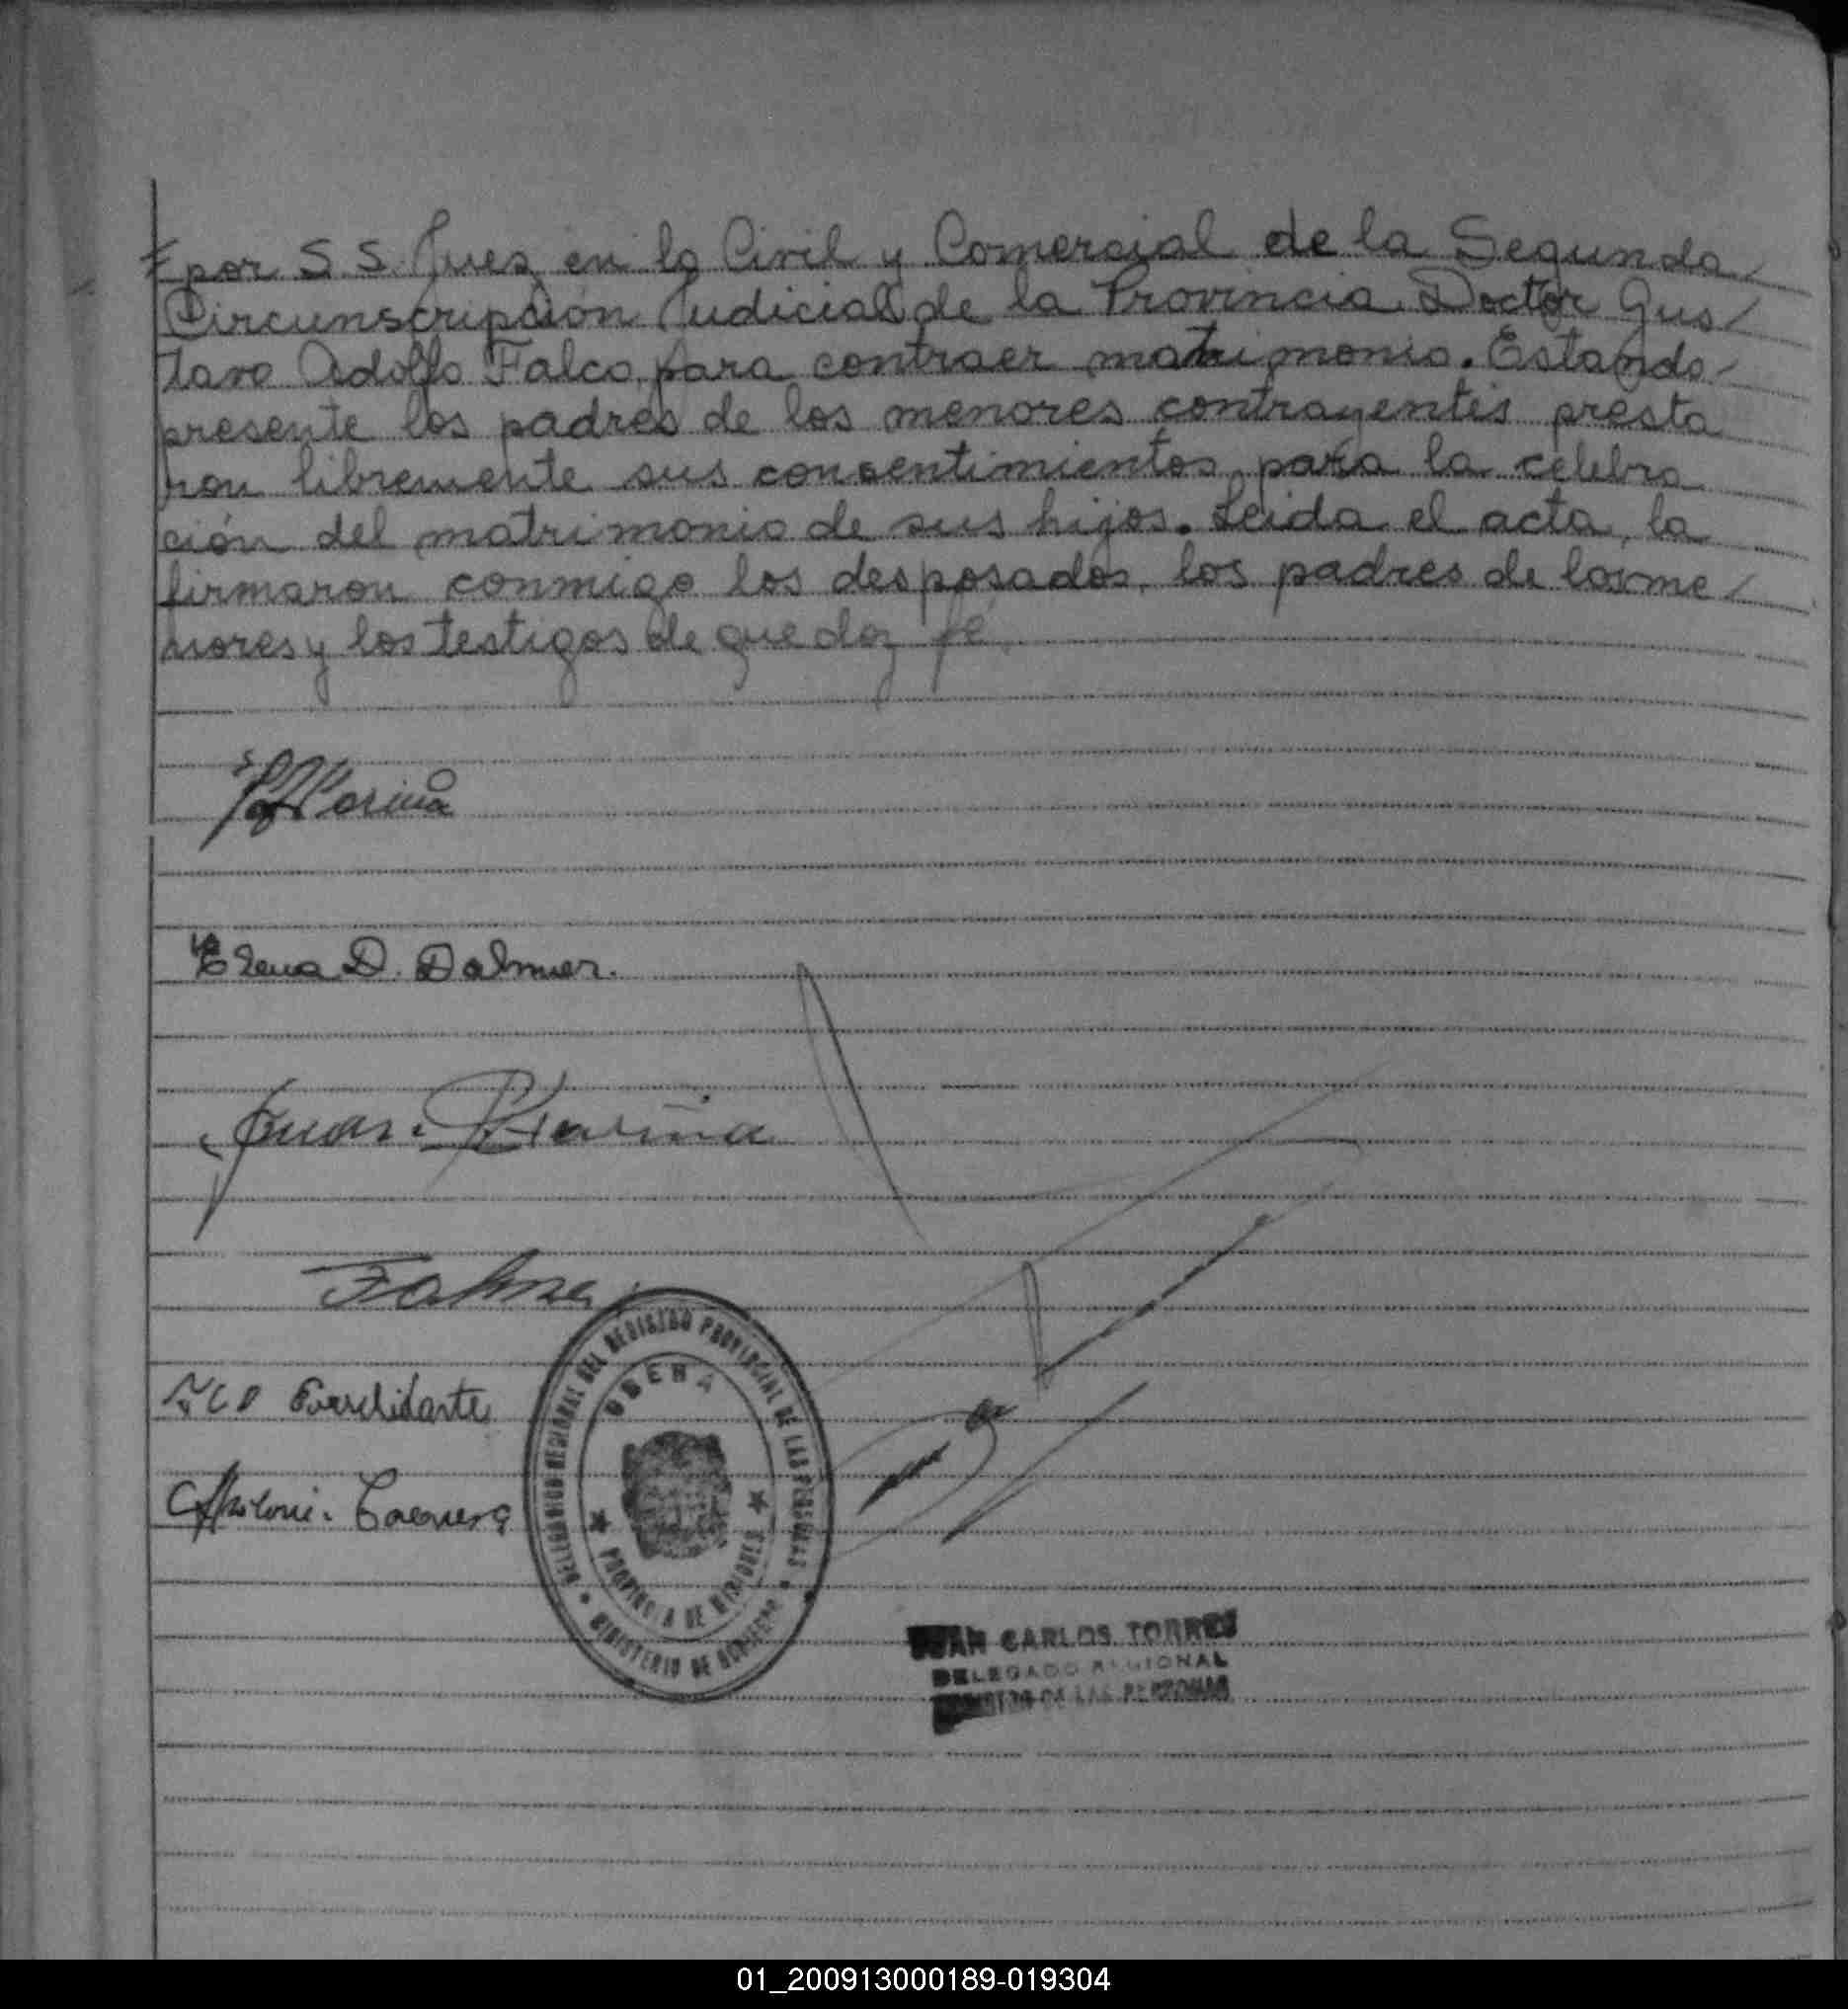 por S. S. Juez en lo Civil y Comercial de la Segunda/
Circunscripción Judicial de la Provincia Doctor Gus/
tavo Adolfo Falco, para contraer matrimonio. Estando/
presente los padres de los menores contrayentes presta
ron libremente sus consentimientos para la celebra
ción del matrimonio de sus hijos. Leida el acta, la
firmaron conmigo los desposados, los padres de los me/
nores y los testigos de que doy fé
Elena D. Dalmer.
Juan
DELEGACION REGIONAL DEL REGISTRO PROVINCIAL DE LAS PERSONAS
OBERA
PROVINCIA DE MISIONES
MINISTERIO DE GOBIERNO
JUAN CARLOS TORRES
DELEGADO REGIONAL
REGISTRO DE LAS PERSONAS
01_200913000189-019304